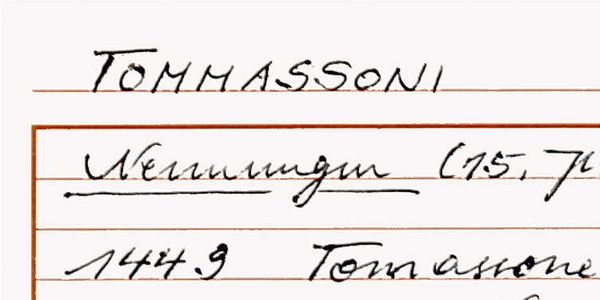 TOMMASSONI
Nennungen (15. Jh
1449 Tomassone